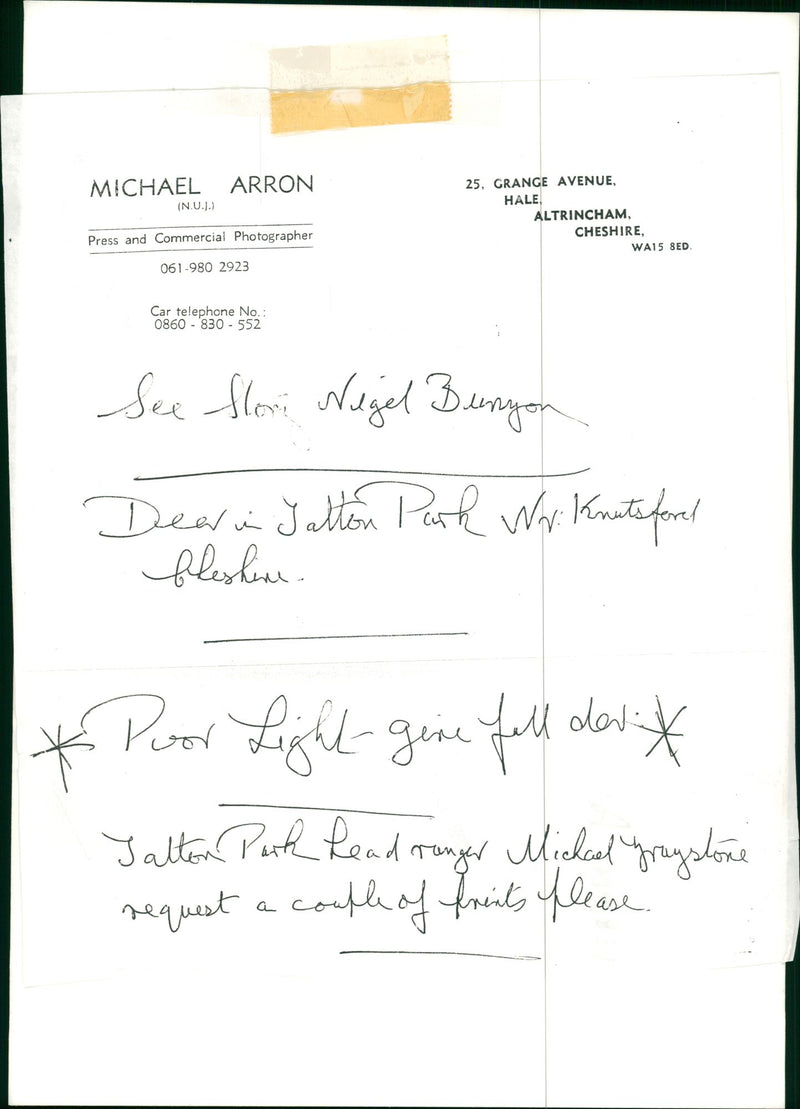 MICHAEL ARRON
(N.U.J.)
Press and Commercial Photographer
061-980 2923
Car telephone No.:
0860 - 830 - 552
25, GRANGE AVENUE,
HALE,
ALTRINCHAM,
CHESHIRE,
WA15 8ED.
See Nigel Bunyon
Deer in Tatton Park Nr: Knutsford
Cheshire.
* Poor Light - give full dev: *
Tatton Park head ranger Michael Graystone
request a couple of prints please.